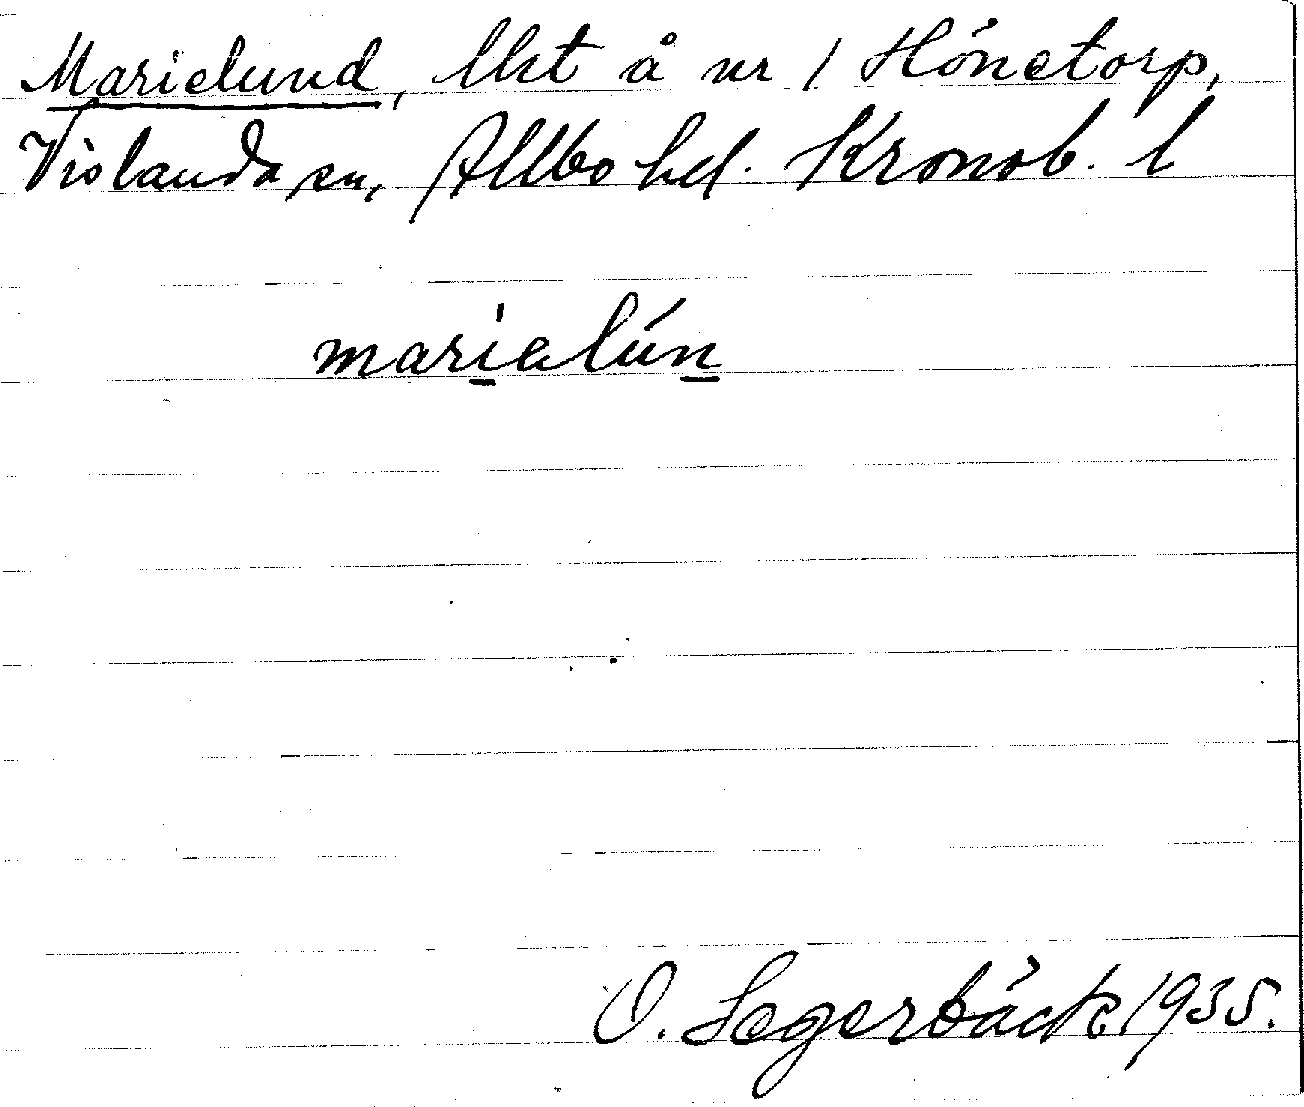 Marielund, lht å nr 1 Hönetorp,
Vislanda sn, Allbo hd. Kronob. l
marialún
O. Segerbäck 1935.